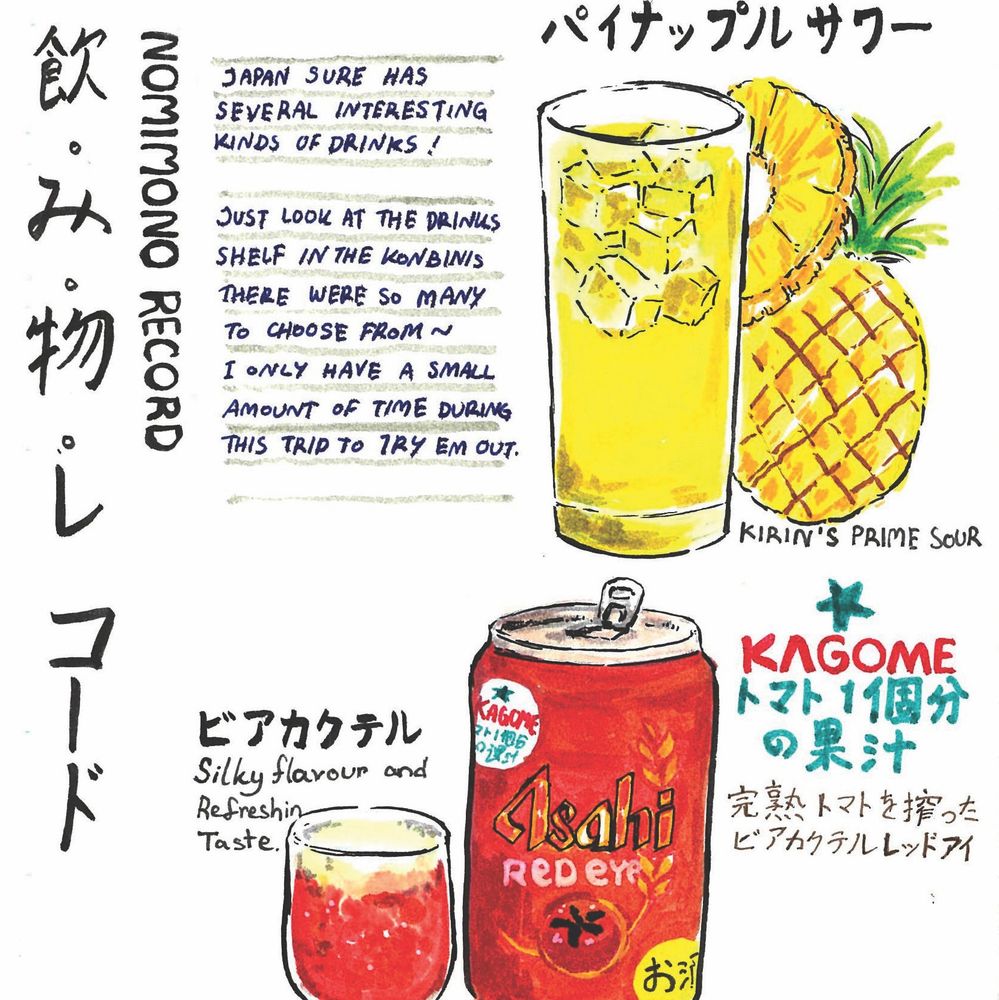 飲・み・物・レコード
NOMIMONO RECORD
JAPAN SURE HAS
SEVERAL INTERESTING
KINDS OF DRINKS!
JUST LOOK AT THE DRINKS
SHELF IN THE KONBINIS
THERE WERE SO MANY
TO CHOOSE FROM~
I ONLY HAVE A SMALL
AMOUNT OF TIME DURING
THIS TRIP TO TRY EM OUT.
パイナップルサワー
KIRIN'S PRIME SOUR
ビアカクテル
Silky flavour and
Refreshin
Taste.
KAGOME
トマト1個分
の果汁
Asahi
RED eye
お酒
KAGOME
トマト1個分
の果汁
完熟トマトを搾った
ビアカクテルレッドアイ